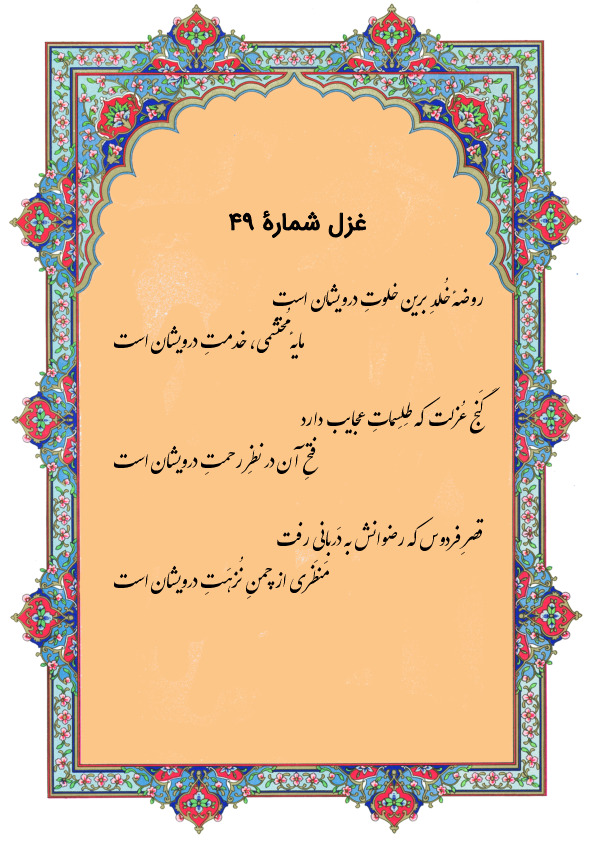 غزل شمارهٔ ۴۹
روضهٔ خُلدِ برین خلوتِ درویشان است
مایهٔ مُحتَشمی، خدمتِ درویشان است
گَنجِ عُزلت که طِلِسماتِ عجایب دارد
فتحِ آن در نظرِ رحمتِ درویشان است
قصرِ فردوس که رضوانش به دَربانی رفت
مَنظَری از چمنِ نُزهَتِ درویشان است